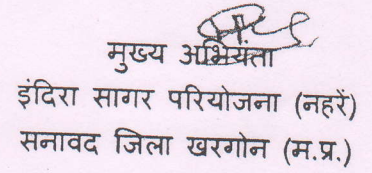 मुख्य अभियंता
इंदिरा सागर परियोजना (नहरें)
सनावद जिला खरगोन (म.प्र.)